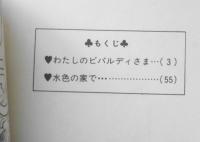 ♣もくじ♣
♥わたしのビバルディさま…(3)
♥水色の家で………………(55)